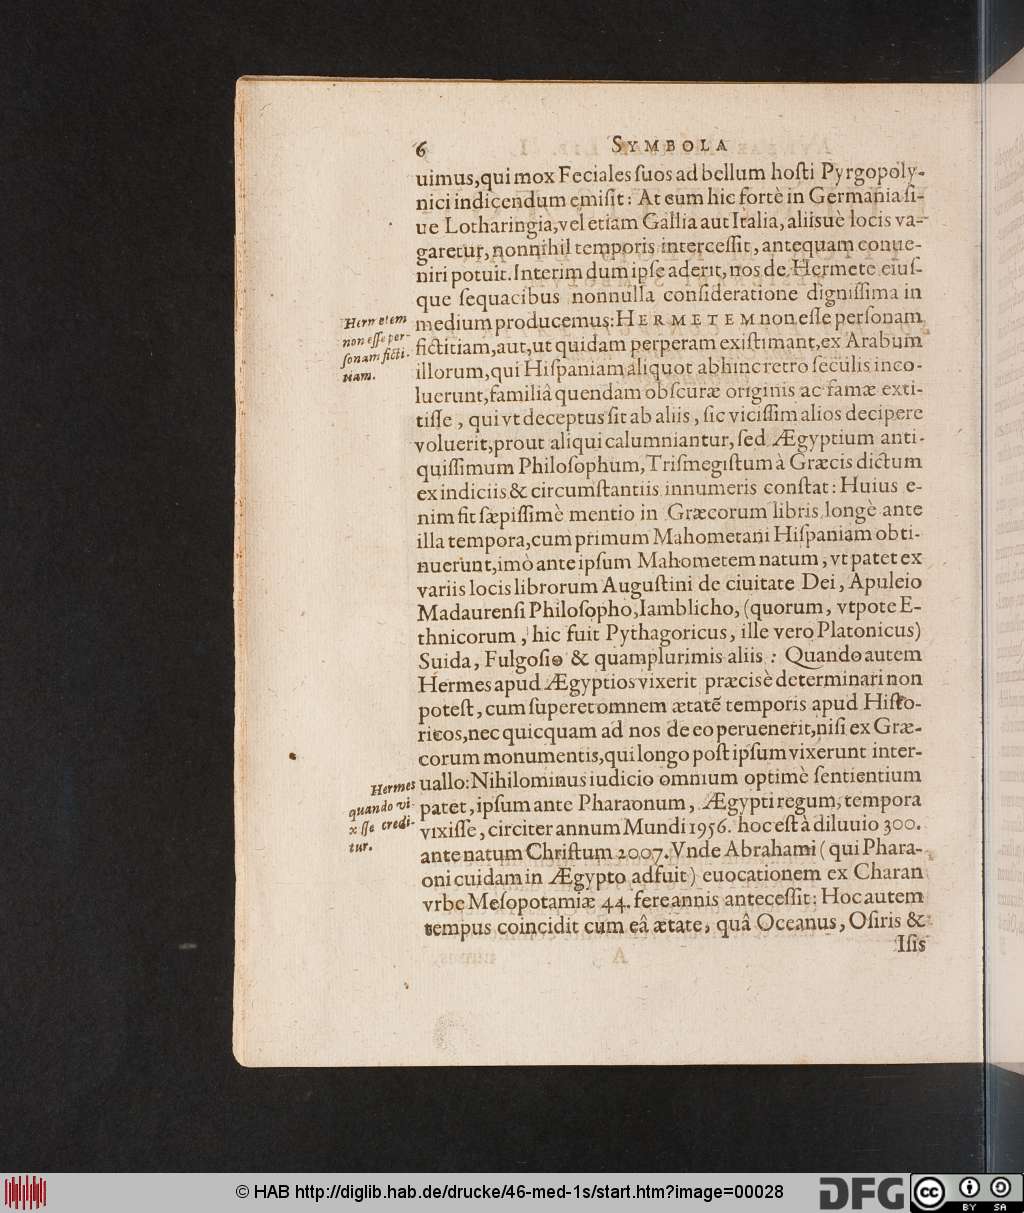 6 SYMBOLA
uimus, qui mox Feciales ſuos ad bellum hoſti Pyrgopoly-
nici indicendum emiſit: At cum hic fortè in Germania ſi-
ue Lotharingia, vel etiam Gallia aut Italia, aliisuè locis va-
garetur, nonnihil temporis interceſſit, antequam conue-
niri potuit. Interim dum ipſe aderit, nos de Hermete eiuſ-
que ſequacibus nonnulla conſideratione digniſſima in
medium producemus: HERMETEM non eſſe perſonam
Hermetem
non eſſe per-
ſonam ficti-
tiam.
fictitiam, aut, ut quidam perperam exiſtimant, ex Arabum
illorum, qui Hiſpaniam aliquot abhinc retro ſeculis inco-
luerunt, familiâ quendam obſcuræ originis ac famæ exti-
tiſſe, qui vt deceptus ſit ab aliis, ſic viciſſim alios decipere
voluerit, prout aliqui calumniantur, ſed Ægyptium anti-
quiſſimum Philoſophum, Triſmegiſtum à Græcis dictum
ex indiciis & circumſtantiis innumeris conſtat: Huius e-
nim fit ſæpiſſimè mentio in Græcorum libris longè ante
illa tempora, cum primum Mahometani Hiſpaniam obti-
nuerunt, imò ante ipſum Mahometem natum, vt patet ex
variis locis librorum Auguſtini de ciuitate Dei, Apuleio
Madaurenſi Philoſopho, Iamblicho, (quorum, vtpote E-
thnicorum, hic fuit Pythagoricus, ille vero Platonicus)
Suida, Fulgoſio & quamplurimis aliis: Quando autem
Hermes apud Ægyptios vixerit præcisè determinari non
poteſt, cum ſuperet omnem ætatē temporis apud Hiſto-
ricos, nec quicquam ad nos de eo peruenerit, niſi ex Græ-
corum monumentis, qui longo poſt ipſum vixerunt inter-
uallo: Nihilominus iudicio omnium optimè ſentientium
Hermes
quando vi-
xiſſe credi-
tur.
patet, ipſum ante Pharaonum, Ægypti regum, tempora
vixiſſe, circiter annum Mundi 1956. hoc eſt à diluuio 300.
ante natum Chriſtum 2007. Vnde Abrahami (qui Phara-
oni cuidam in Ægypto adfuit) euocationem ex Charan
vrbe Meſopotamiæ 44. fere annis anteceſſit: Hoc autem
tempus coincidit cum eâ ætate, quâ Oceanus, Oſiris &
Iſis
© HAB http://diglib.hab.de/drucke/46-med-1s/start.htm?image=00028
DFG
cc BY SA